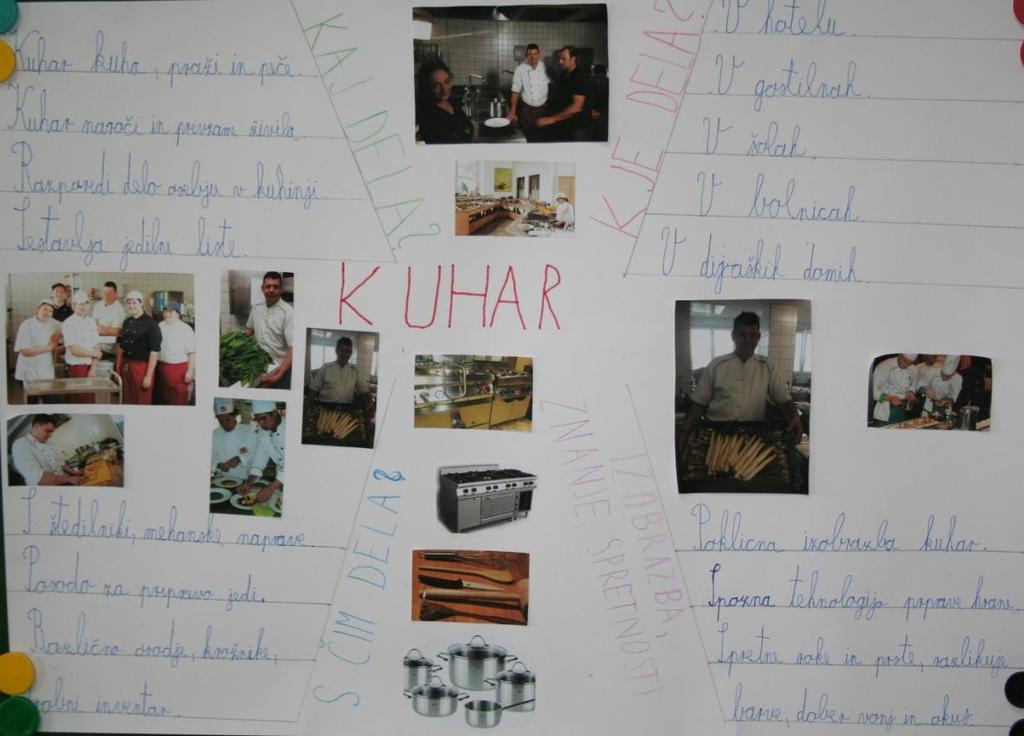 KAJ DELA?
Kuhar kuha, praži in peče.
Kuhar naroči in prevzame živila.
Razporedi delo osebju v kuhinji.
Sestavlja jedilne liste.
KJE DELA?
V hotelu.
V gostilnah.
V šolah.
V bolnicah.
V dijaških domih.
KUHAR
S ČIM DELA?
S štedilniki, mehanske naprave.
Posodo za pripravo jedi.
Različno orodje, krožnike,
drobni inventar.
IZOBRAZBA,
ZNANJE, SPRETNOSTI
Poklicna izobrazba kuhar.
Spozna tehnologijo priprave hrane.
Spretne roke in prste, razlikuje
barve, dober vonj in okus.